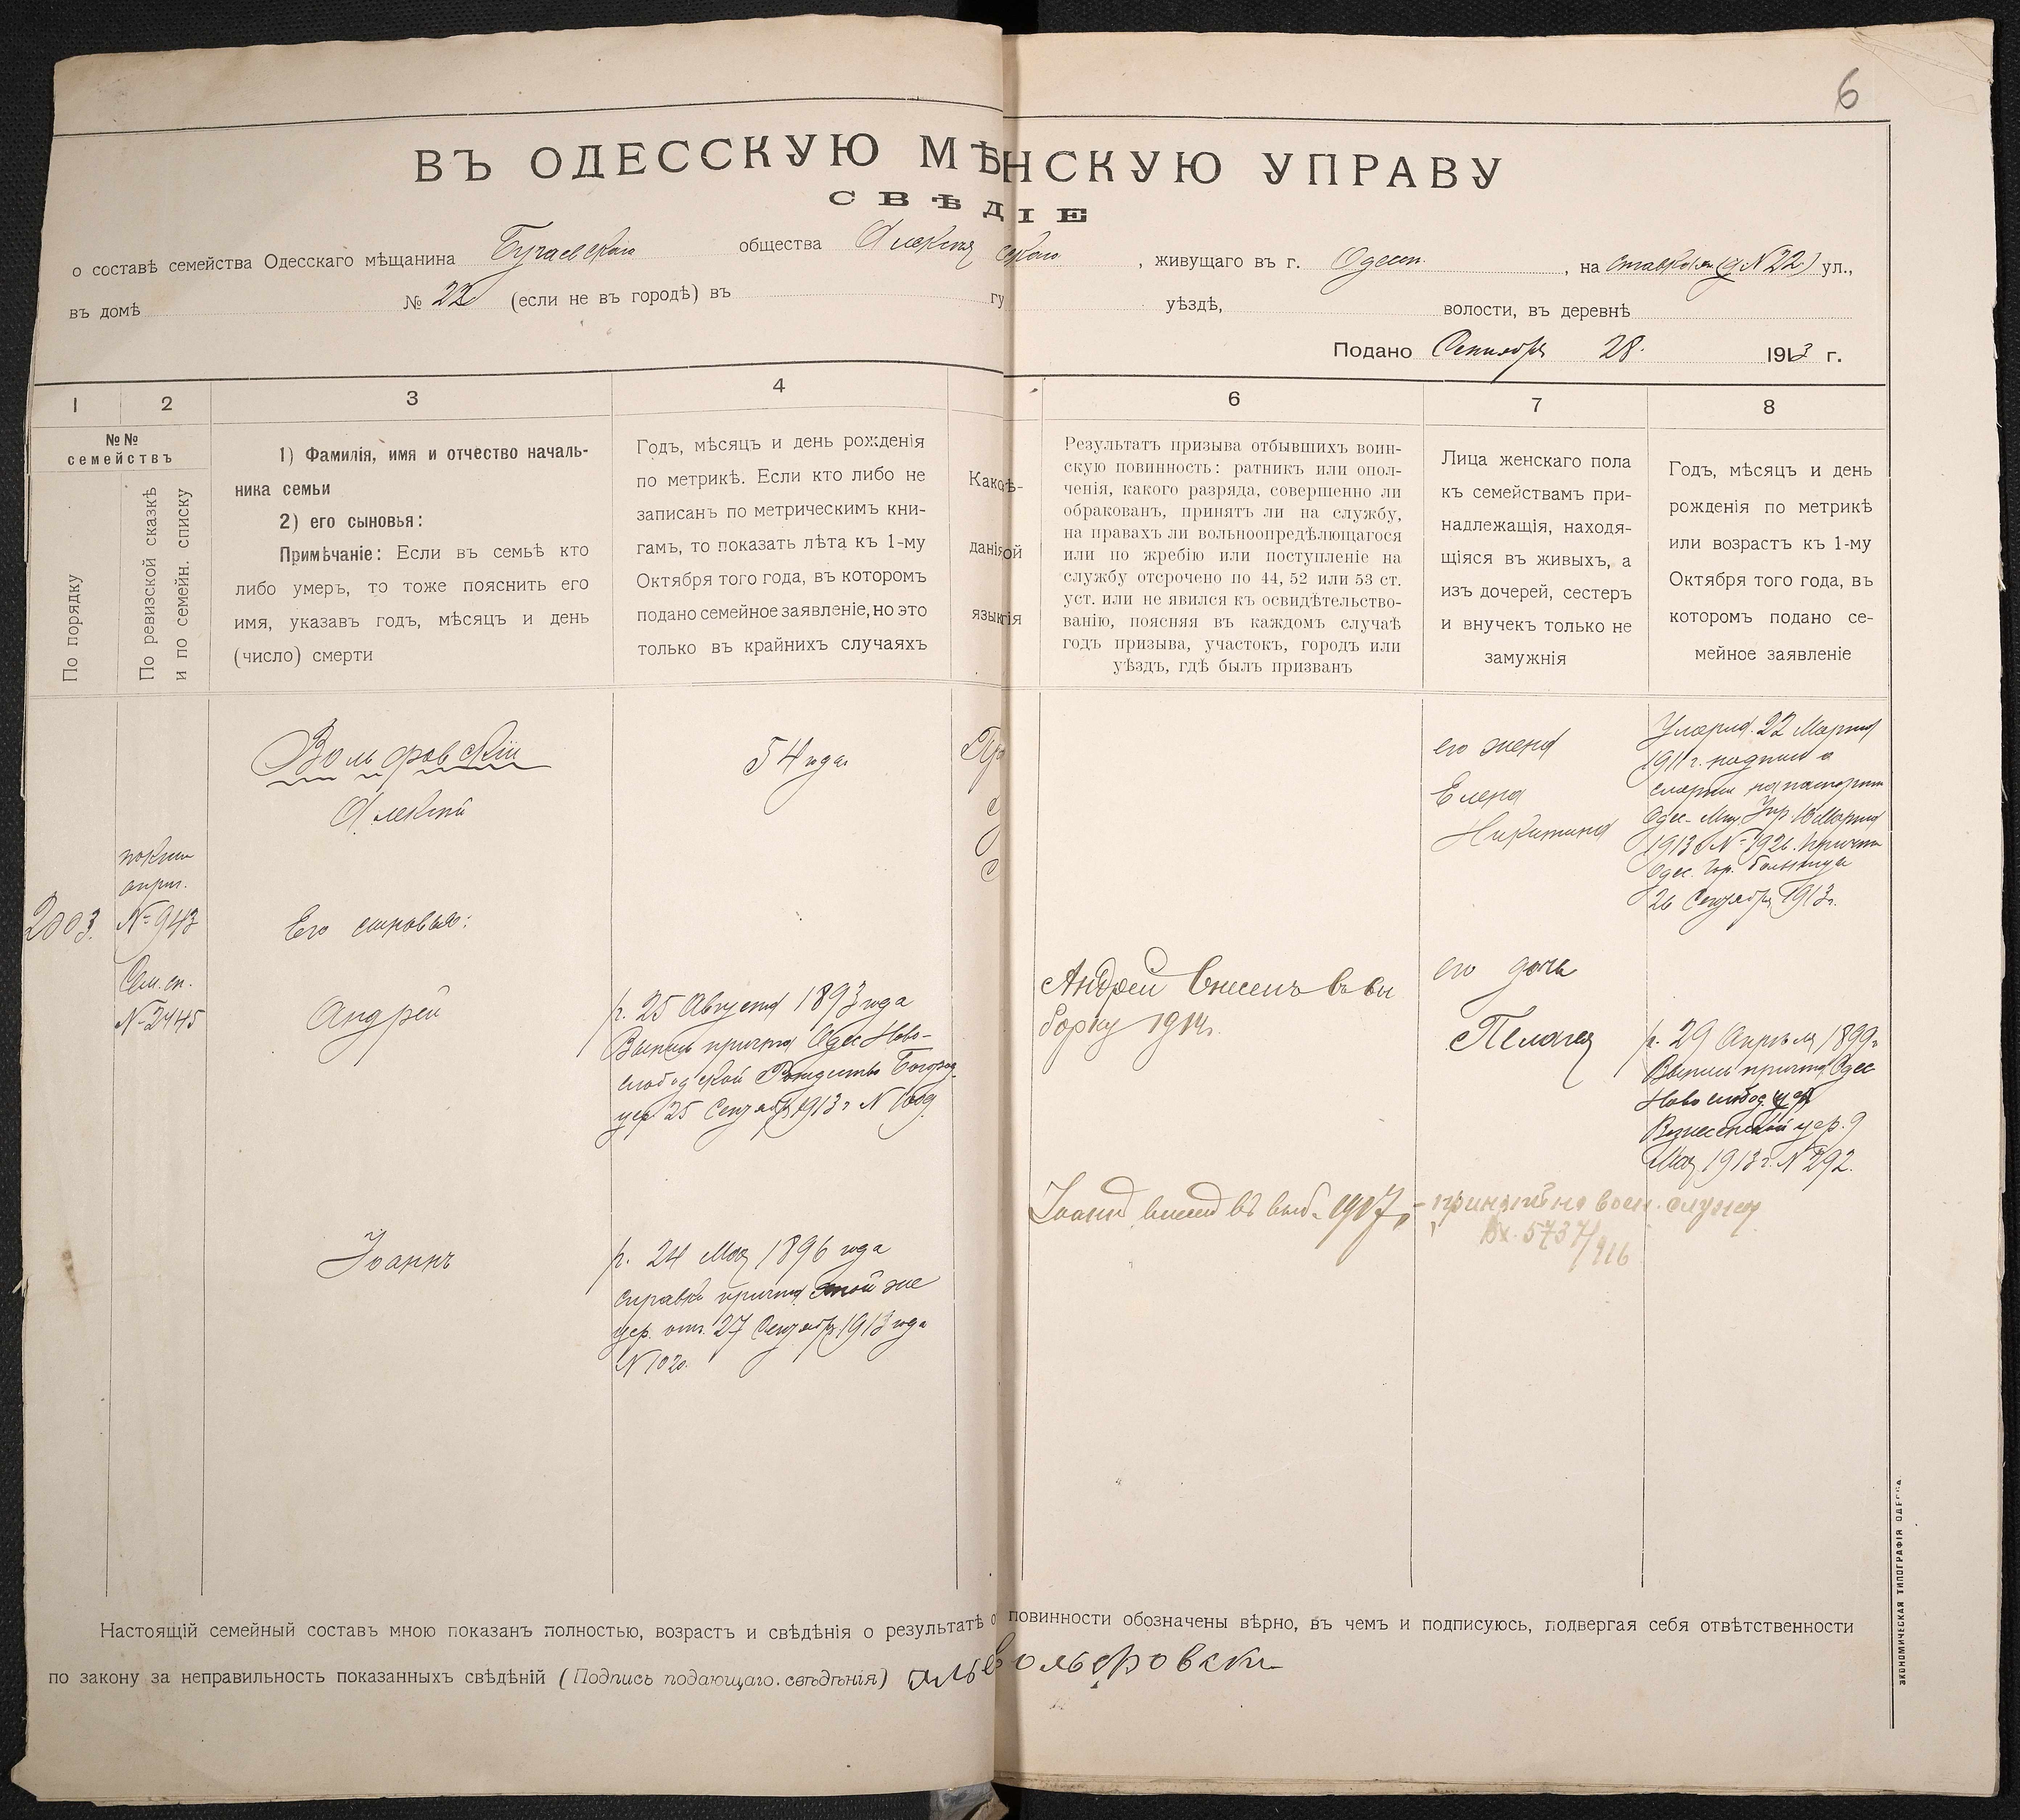 6
ВЪ ОДЕССКУЮ МѢНСКУЮ УПРАВУ
СВѢДІЕ
о составѣ семейства Одесскаго мѣщанина Бугаевскаго общества Алексѣя , живущаго въ г. Одесс. , на (д N 22) ул.,
въ домѣ № 22 (если не въ городѣ) въ гу уѣздѣ, волости, въ деревнѣ
Подано Сентября 28. 1913 г.
1
2
3
4
6
7
8
№№ семействъ
По порядку
По ревизской сказкѣ
и по семейн. списку
1) Фамилія, имя и отчество началь-
ника семьи
2) его сыновья:
Примѣчаніе: Если въ семьѣ кто
либо умеръ, то тоже пояснить его
имя, указавъ годъ, мѣсяцъ и день
(число) смерти
Годъ, мѣсяцъ и день рожденія
по метрикѣ. Если кто либо не
записанъ по метрическимъ кни-
гамъ, то показать лѣта къ 1-му
Октября того года, въ которомъ
подано семейное заявленіе, но это
только въ крайнихъ случаяхъ
Како
ѣ-
данія
ой
язык
гія
Результатъ призыва отбывшихъ воин-
скую повинность: ратникъ или опол-
ченія, какого разряда, совершенно ли
обракованъ, принятъ ли на службу,
на правахъ ли вольноопредѣляющагося
или по жребію или поступленіе на
службу отсрочено по 44, 52 или 53 ст.
уст. или не явился къ освидѣтельство-
ванію, поясняя въ каждомъ случаѣ
годъ призыва, участокъ, городъ или
уѣздъ, гдѣ былъ призванъ
Лица женскаго пола
къ семействамъ при-
надлежащія, находя-
щіяся въ живыхъ, а
изъ дочерей, сестеръ
и внучекъ только не
замужнія
Годъ, мѣсяцъ и день
рожденія по метрикѣ
или возрастъ къ 1-му
Октября того года, въ
которомъ подано се-
мейное заявленіе
2003.
№ 943
Сем. сп.
№ 2445
Вольфовскій
Алексѣй
54 года
Пра
Его сыновья:
Андрей
р. 25 Августа 1893 года
Выпись причта Одес Ново-
слободской Рождество Богород
цер 25 Сентября 1913 г N
Іоаннъ
р. 24 Мая 1896 года
справка причта той же
цер. отъ 27 Сентября 1913 года
N 1020.
Андрей Внесенъ въ вы
борку 1914г.
Іоаннъ внесенъ въ выб. 1917 г. - принятъ на воен. службу
Вх. 5737/916
его жена
Елена
Никитина
Умерла 22 Марта
1911 г. надпись о
смерти на паспортѣ
Одес. Мѣщ. Упр. Марта
1913 N 1926. причта
Одес. Гор. больницы
26 Сентября 1913г.
его дочь
Пелагея
р. 29 Апрѣля 1899г
Выпись причта Одес
Ново слобод. цер
Вознесенской цер. 9
Мая 1913 г. N 292.
Настоящій семейный составъ мною показанъ полностью, возрастъ и свѣдѣнія о результатѣ о повинности обозначены вѣрно, въ чемъ и подписуюсь, подвергая себя отвѣтственности
по закону за неправильность показанныхъ свѣдѣній (Подпись подающаго свѣдѣнія)
ЭКОНОМИЧЕСКАЯ ТИПОГРАФІЯ ОДЕССА.